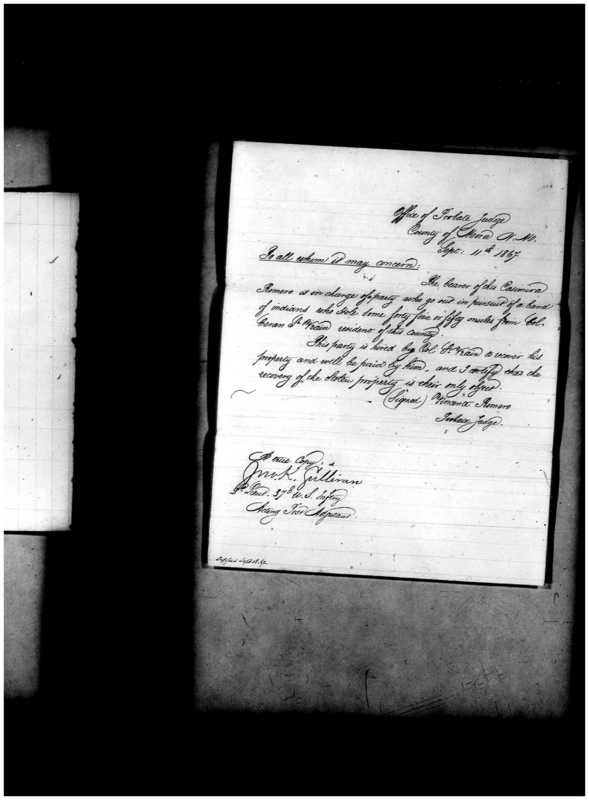 Office of Probate Judge
County of Mora N. M.
Sept. 11th 1867
To all whom it may concern:
The, bearer of this Casimiro
Romero is in charge of party who go out in pursuit of a band
of indians who stole some forty five or fifty mules from Col.
Ceran St. Vrain resident of this County.
This party is hired by Col. St. Vrain to recover his
property and will be paid by him, and I certify that the
recovery of the stolen property is their only object.
(Signed) Vincente Romero
Probate Judge.
A true Copy.
Jno. K. Sullivan
Lieut. 37th U.S. Inftry
Acting Post Adjutant